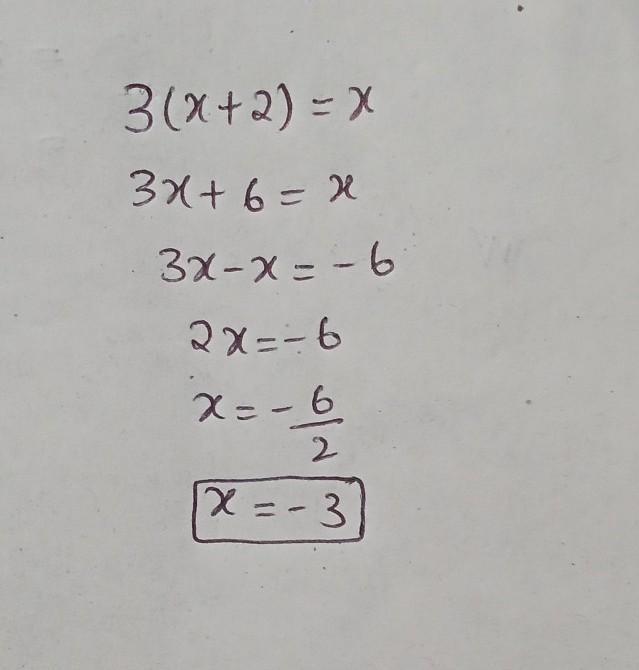 3(x+2) = x
3x + 6 = x
3x - x = -6
2x = -6
x = - 6/2
x = - 3